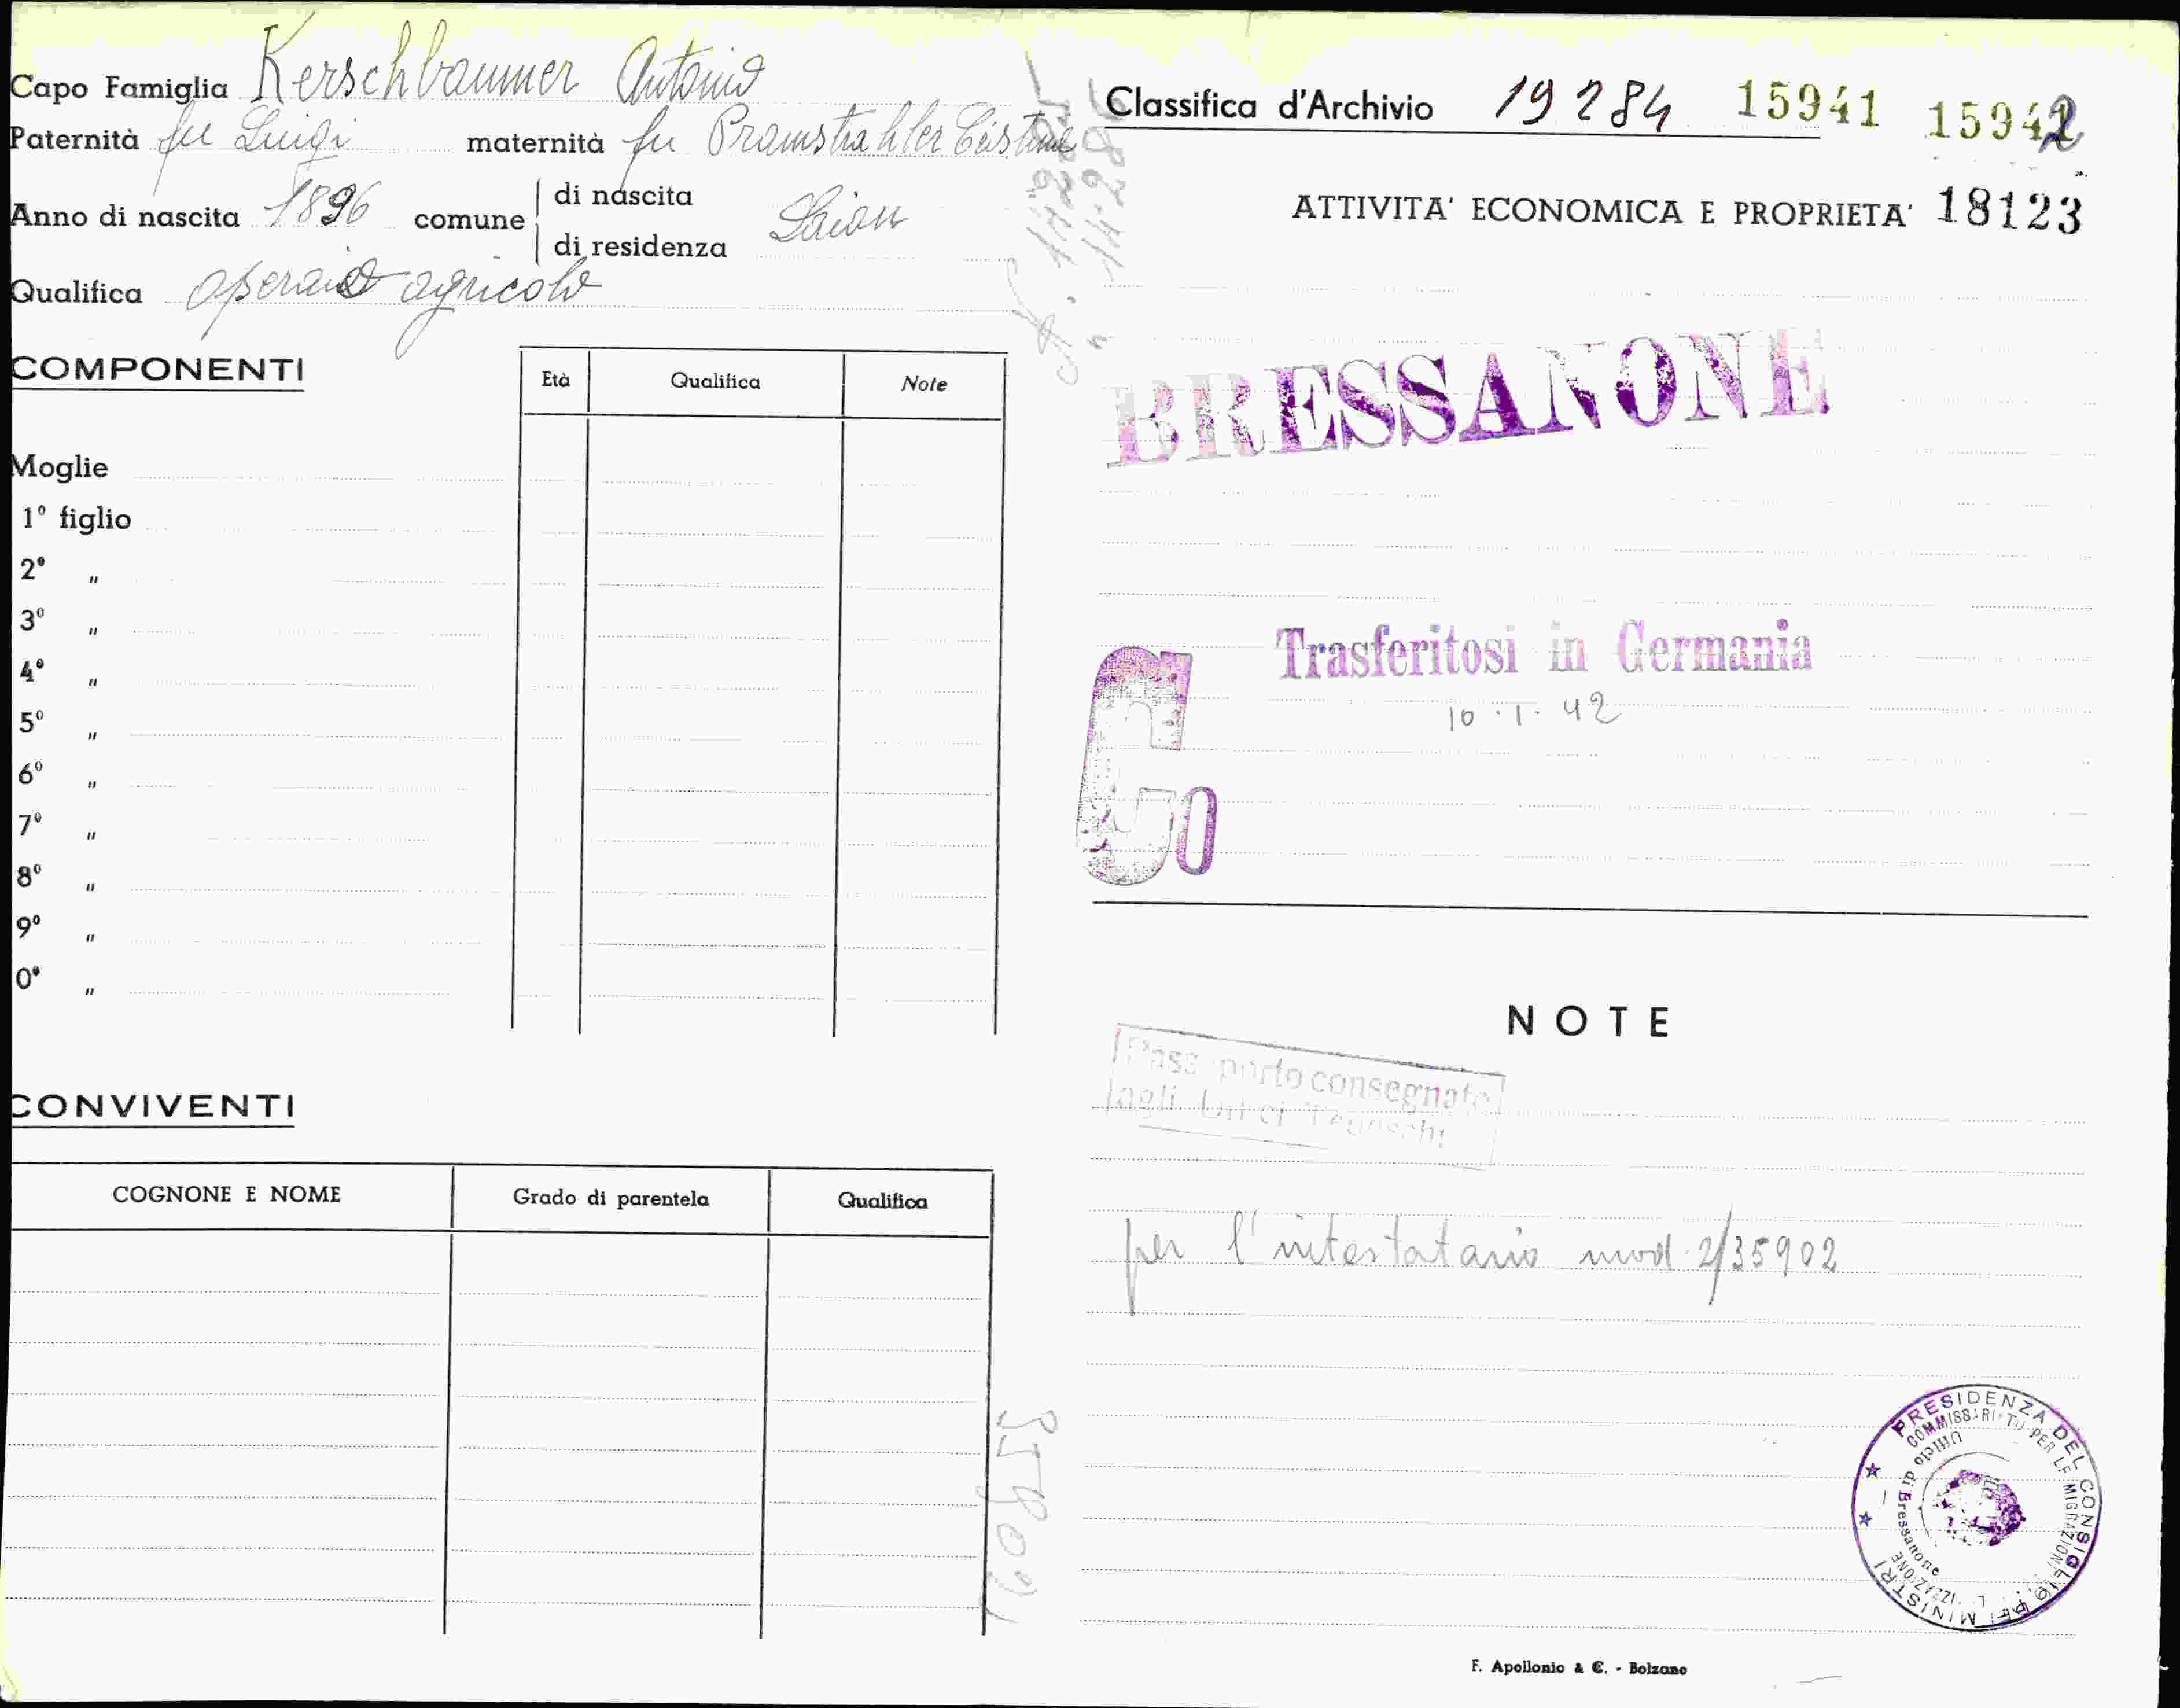 Capo Famiglia Kerschbaumer Antonio
Paternità fu Luigi maternità fu Pramstrahler
Anno di nascita 1896 comune di nascita Laion
di residenza
Qualifica operaio agricolo
COMPONENTI
Età Qualifica Note
Moglie
1º figlio
2º "
3º "
4º "
5º "
6º "
7º "
8º "
9º "
0º "
CONVIVENTI
COGNONE E NOME Grado di parentela Qualifica
35902
Classifica d'Archivio 19284 15941 15942
ATTIVITA' ECONOMICA E PROPRIETA' 18123
BRESSANONE
Trasferitosi in Germania
10.1.42
G0
NOTE
Passaporto consegnato
agli Uffici Tedeschi
per l'intestatario mod. 2/35902
PRESIDENZA DEL CONSIGLIO DEI MINISTRI
COMMISSARIATO PER LE MIGRAZIONI
Ufficio di Bressanone
F. Apollonio & C. - Bolzano